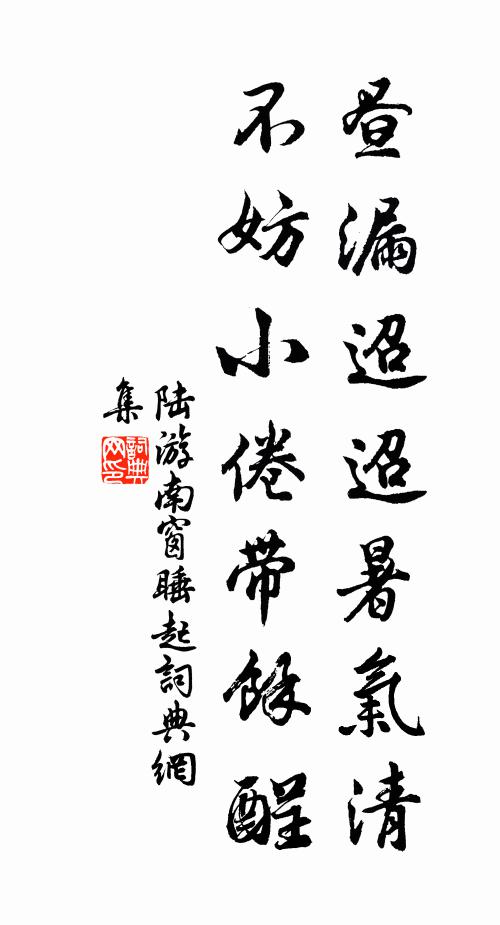 昼漏迢迢暑氣清
不妨小倦帶餘酲
陆游南窗睡起詞典網
集
詞典
网印